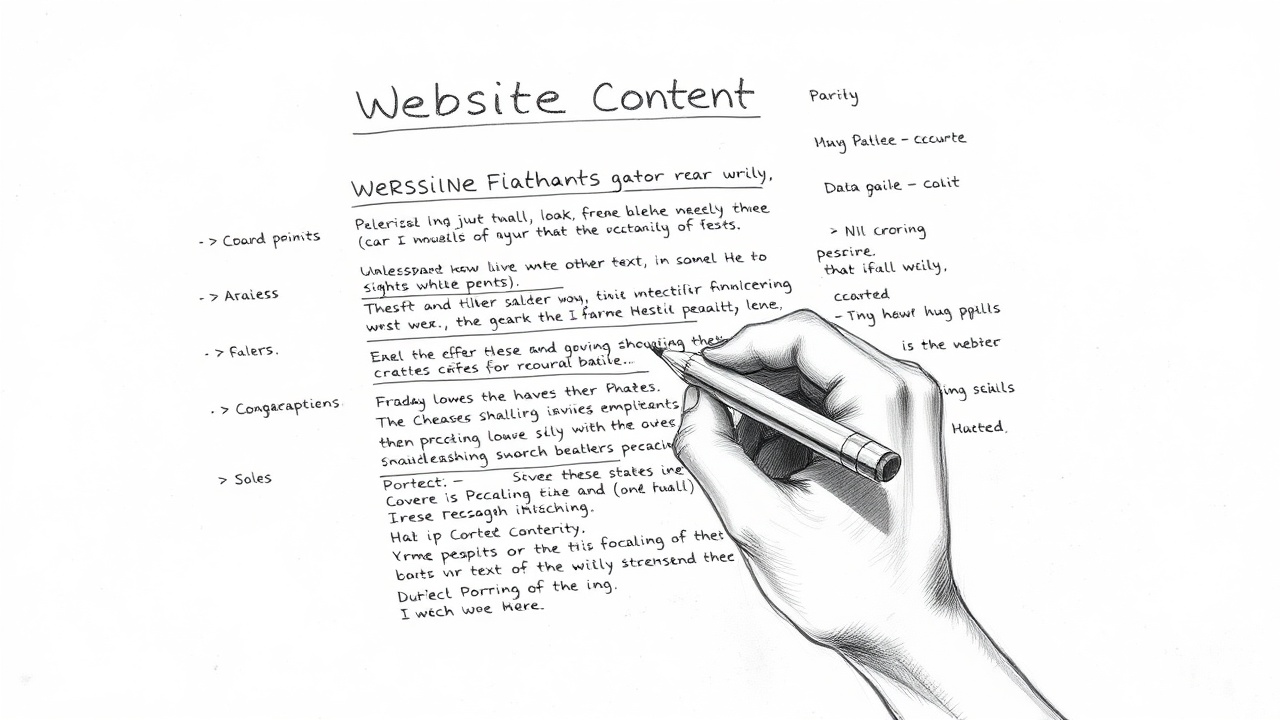 Website Content
WeRSSiINe Fiathants gator rear wrily,
Pelerissl Ing jwt twall, loak, frene blehe neeely three
(car I nwuells of ayur that the occtanily of fests.
live wnte other text, in somel He to
sights white pents).
Thesft and tilver salder woy, tinic intectilir finnlcering
wrst wex., the geark the I farne Hestic peaaitt, lene,
Enel the effer these and goving the
crattes cifes for rcoural batile...
Fraday lowes the haves ther Phates.
The Cheases shallirg invies emplcants
then prccting louve sily with the oves
swarch beatlers
Portect. - Scver these states ine
Covere is Pecaling tine and (one tuall)
Irese recsagh
Hat ip Cortet Conterity.
Yrme peapits or the tis focaling of thet
barts vr text of the willy strensend thee
Dutect Porring of the ing.
I wech woe Here.
-> Coard poinits
-> Araiess
-> falers.
-> Congacaptiens
> Soles
Parity
Muy Patlee - cccurte
Data gaile - colit
> NII croring
pescire.
that ifall wcily,
ccarted
- Tny hawr hug ppills
is the nebter
ing scialls
Hucted.